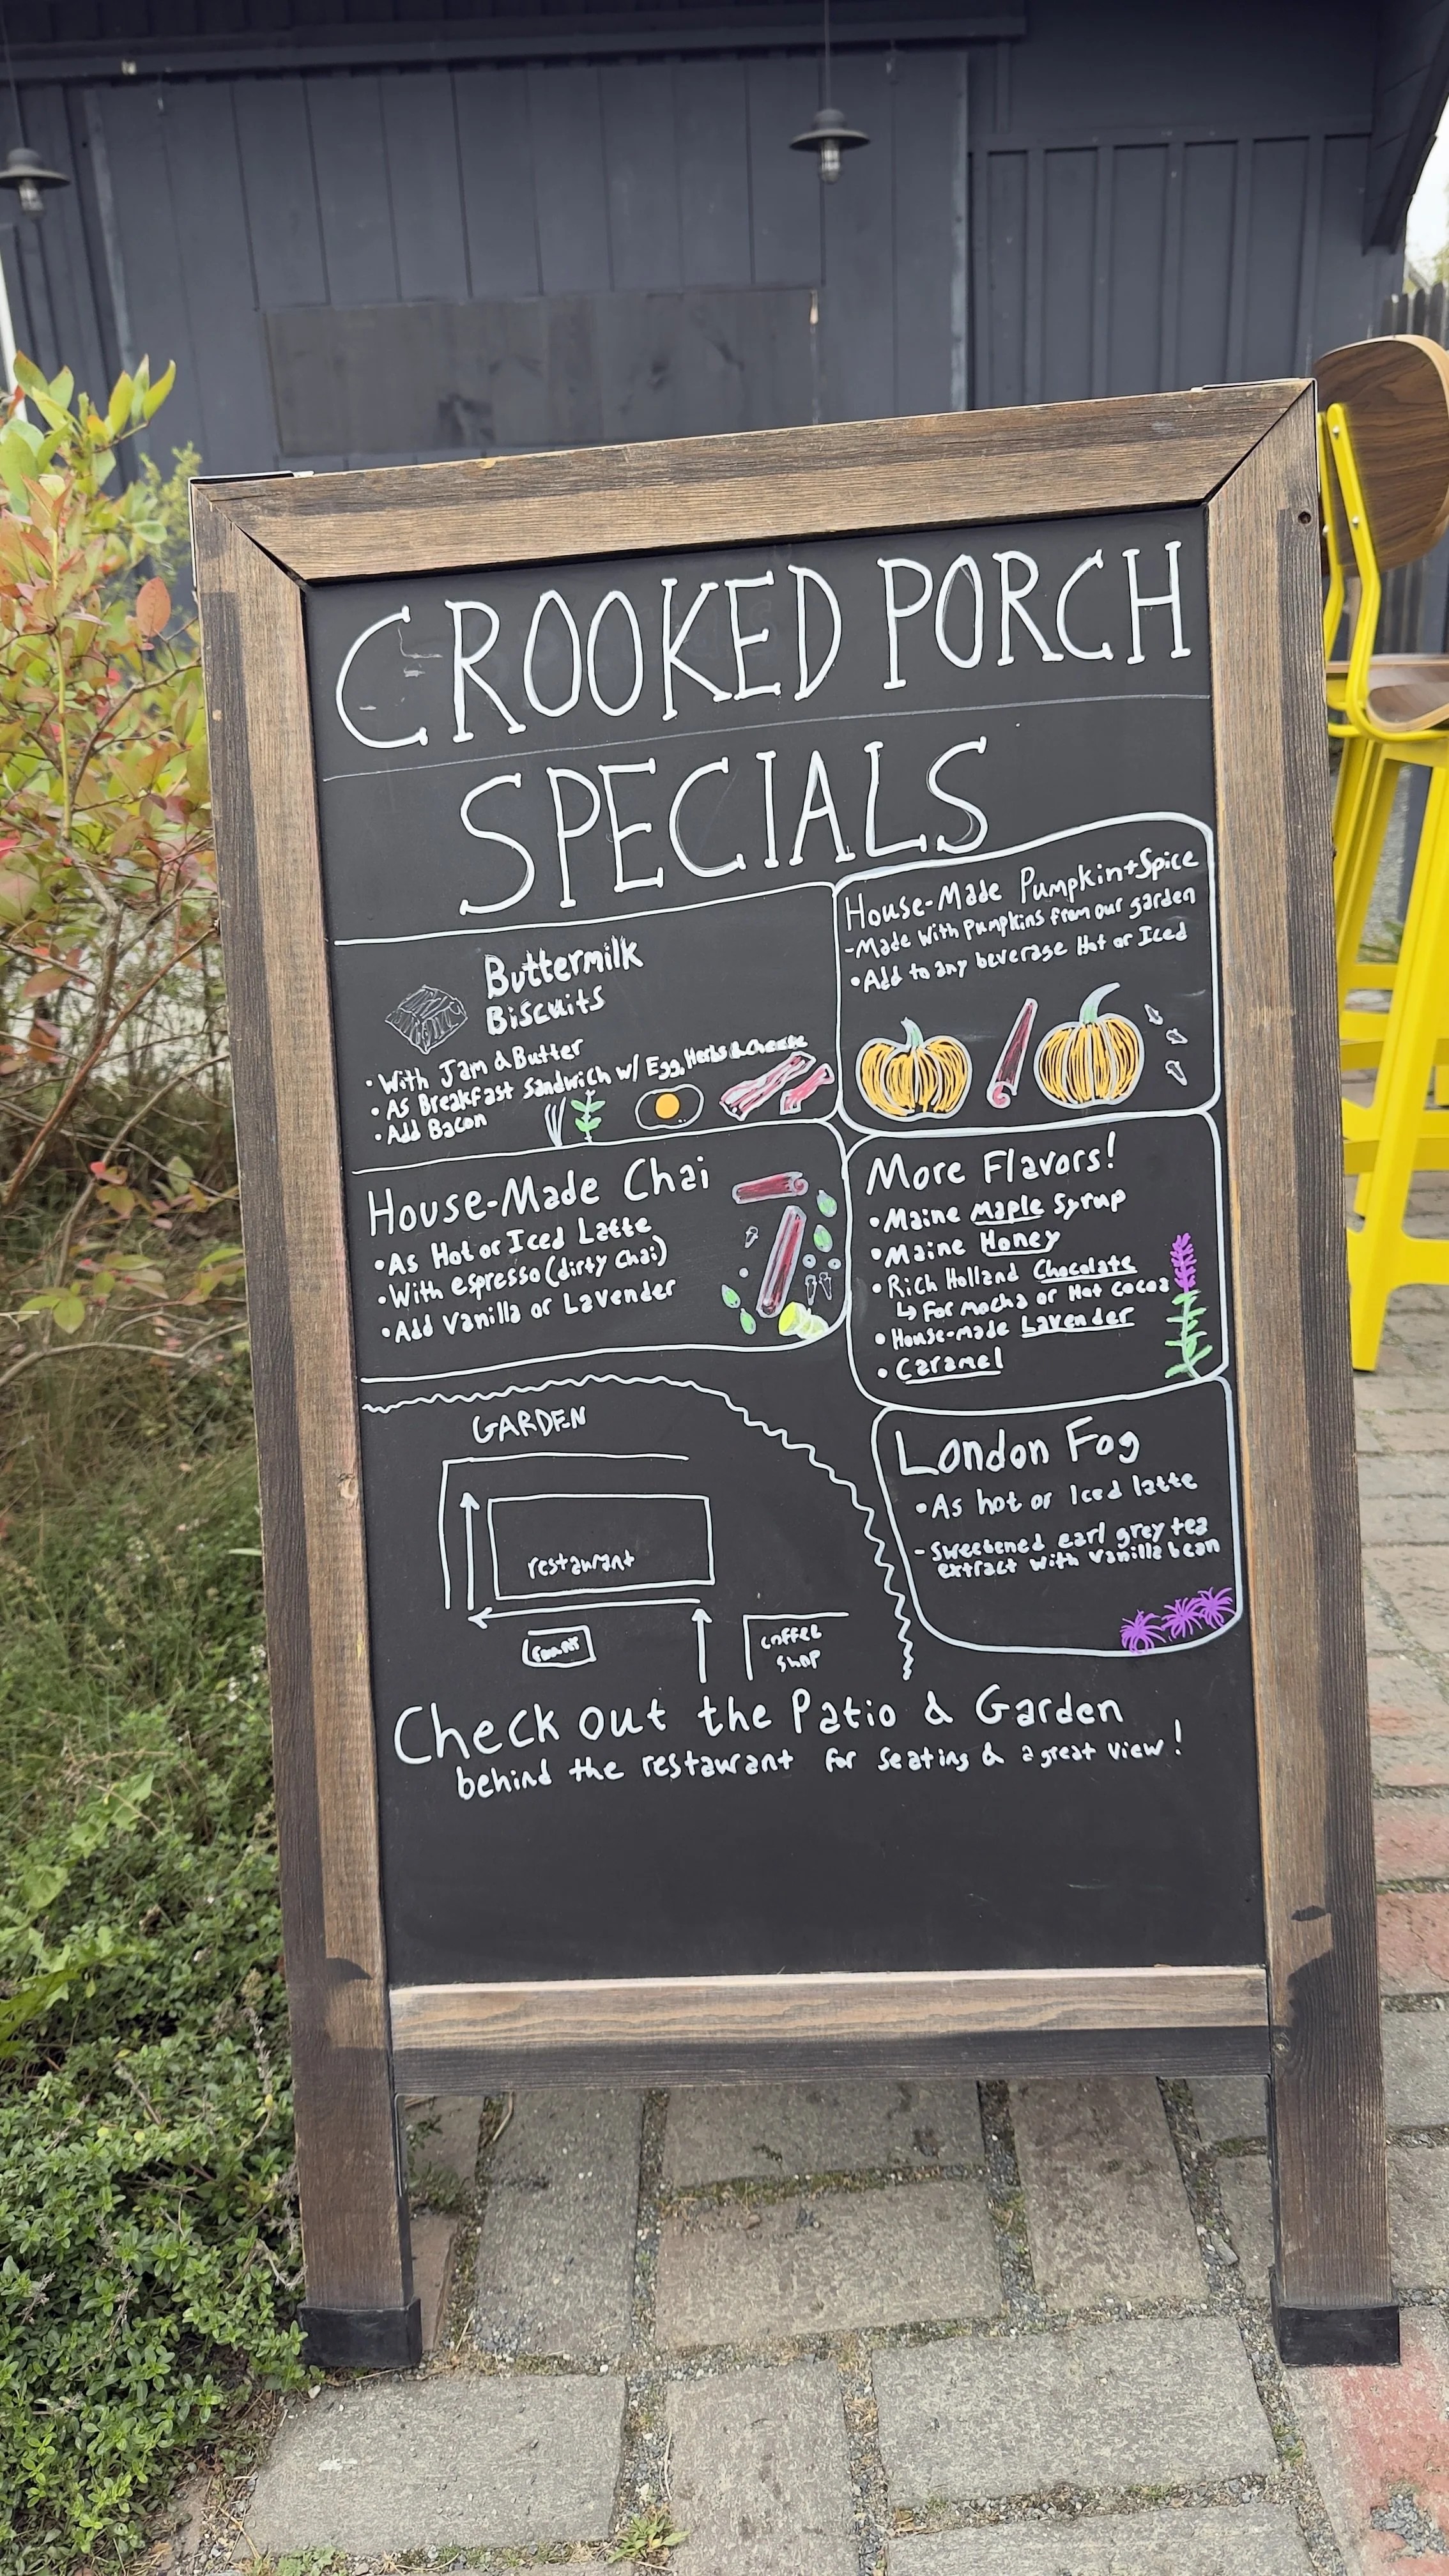 CROOKED PORCH
SPECIALS
Buttermilk
Biscuits
• With Jam & Butter
• As Breakfast Sandwich w/ Egg, Herbs & Cheese
• Add Bacon
House-Made Pumpkin+Spice
-Made with Pumpkins from our garden
• Add to any beverage Hot or Iced
House-Made Chai
• As Hot or Iced Latte
• With espresso (dirty chai)
• Add Vanilla or Lavender
More Flavors!
• Maine Maple Syrup
• Maine Honey
• Rich Holland Chocolate
↳ For mocha or Hot cocoa
• House-made Lavender
• Caramel
London Fog
• As hot or Iced latte
- Sweetened earl grey tea
extract with vanilla bean
GARDEN
restaurant
coffee
shop
Check out the Patio & Garden
behind the restaurant for seating & a great view!